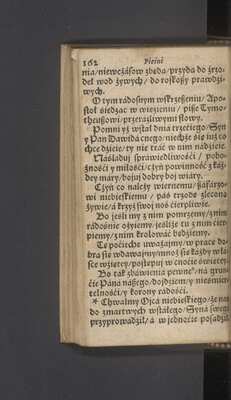 162 Pieśni
nia/niewczásow zbędą/przydą do źrzo-
deł wod żywych/ do roskoßy prawdzi-
wych.
O tym rádosnym wskrzeßeniu/ Apo-
stoł siedząc w więzieniu/ piße Tymo-
theußowi/ przeráźliwymi słowy.
Pomni yż wstał dniá trzeciego/ Syn
y Pan Dawidá cnego/ niechże się iuż co
chce dzieie/ ty nie trać w nim nádzieie.
Náśláduy spráwiedliwości/ pobo-
żności y miłości/ czyń powinność z káż-
dey miáry/ boiuy dobry boy wiáry.
Czyń co należy wiernemu/ ßáfárzo-
wi niebieskiemu/ páś trzodę zleconą
żywie/ á krzyż swoy noś cierpliwie.
Bo iesli my z nim pomrzemy/ z nim
rádośnie ożyiemy/ ieżliże tu z nim cier-
piemy/ z nim krolowáć będziemy.
Te pociechę uważaymy/ w pracę do-
brą się wdawaymy/ mnoż się káżdy w łá-
sce wziętey/ postępuy w cnocie świętey
Bo ták zbáwienia pewne/ ná grun-
cie Páná náßego/ doydziemy/ y nieśmier-
telności/ y korony rádości.
* Chwalmy Oycá niebieskiego/ że nas
do zmartwych wstałego/ Syná swego
przyprowádził/ á w iednocie posádził